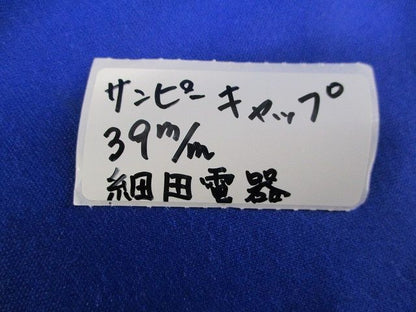 サンピーキャップ
39m/m
細田電器